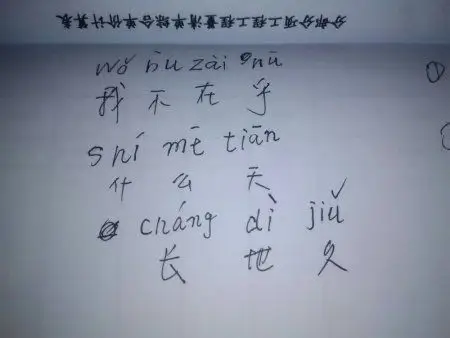 分部分项工程工程量清单综合单价计算表
wǒ bu zài hū
我 不 在 乎
shí mē tiān
什 么 天
cháng dì jiǔ
长 地 久
①